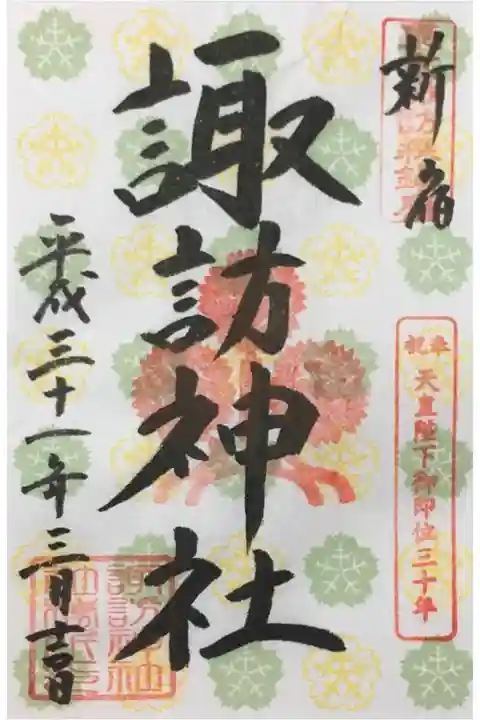 新宿
奉祝
天皇陛下御即位三十年
諏訪神社
平成三十一年三月吉日